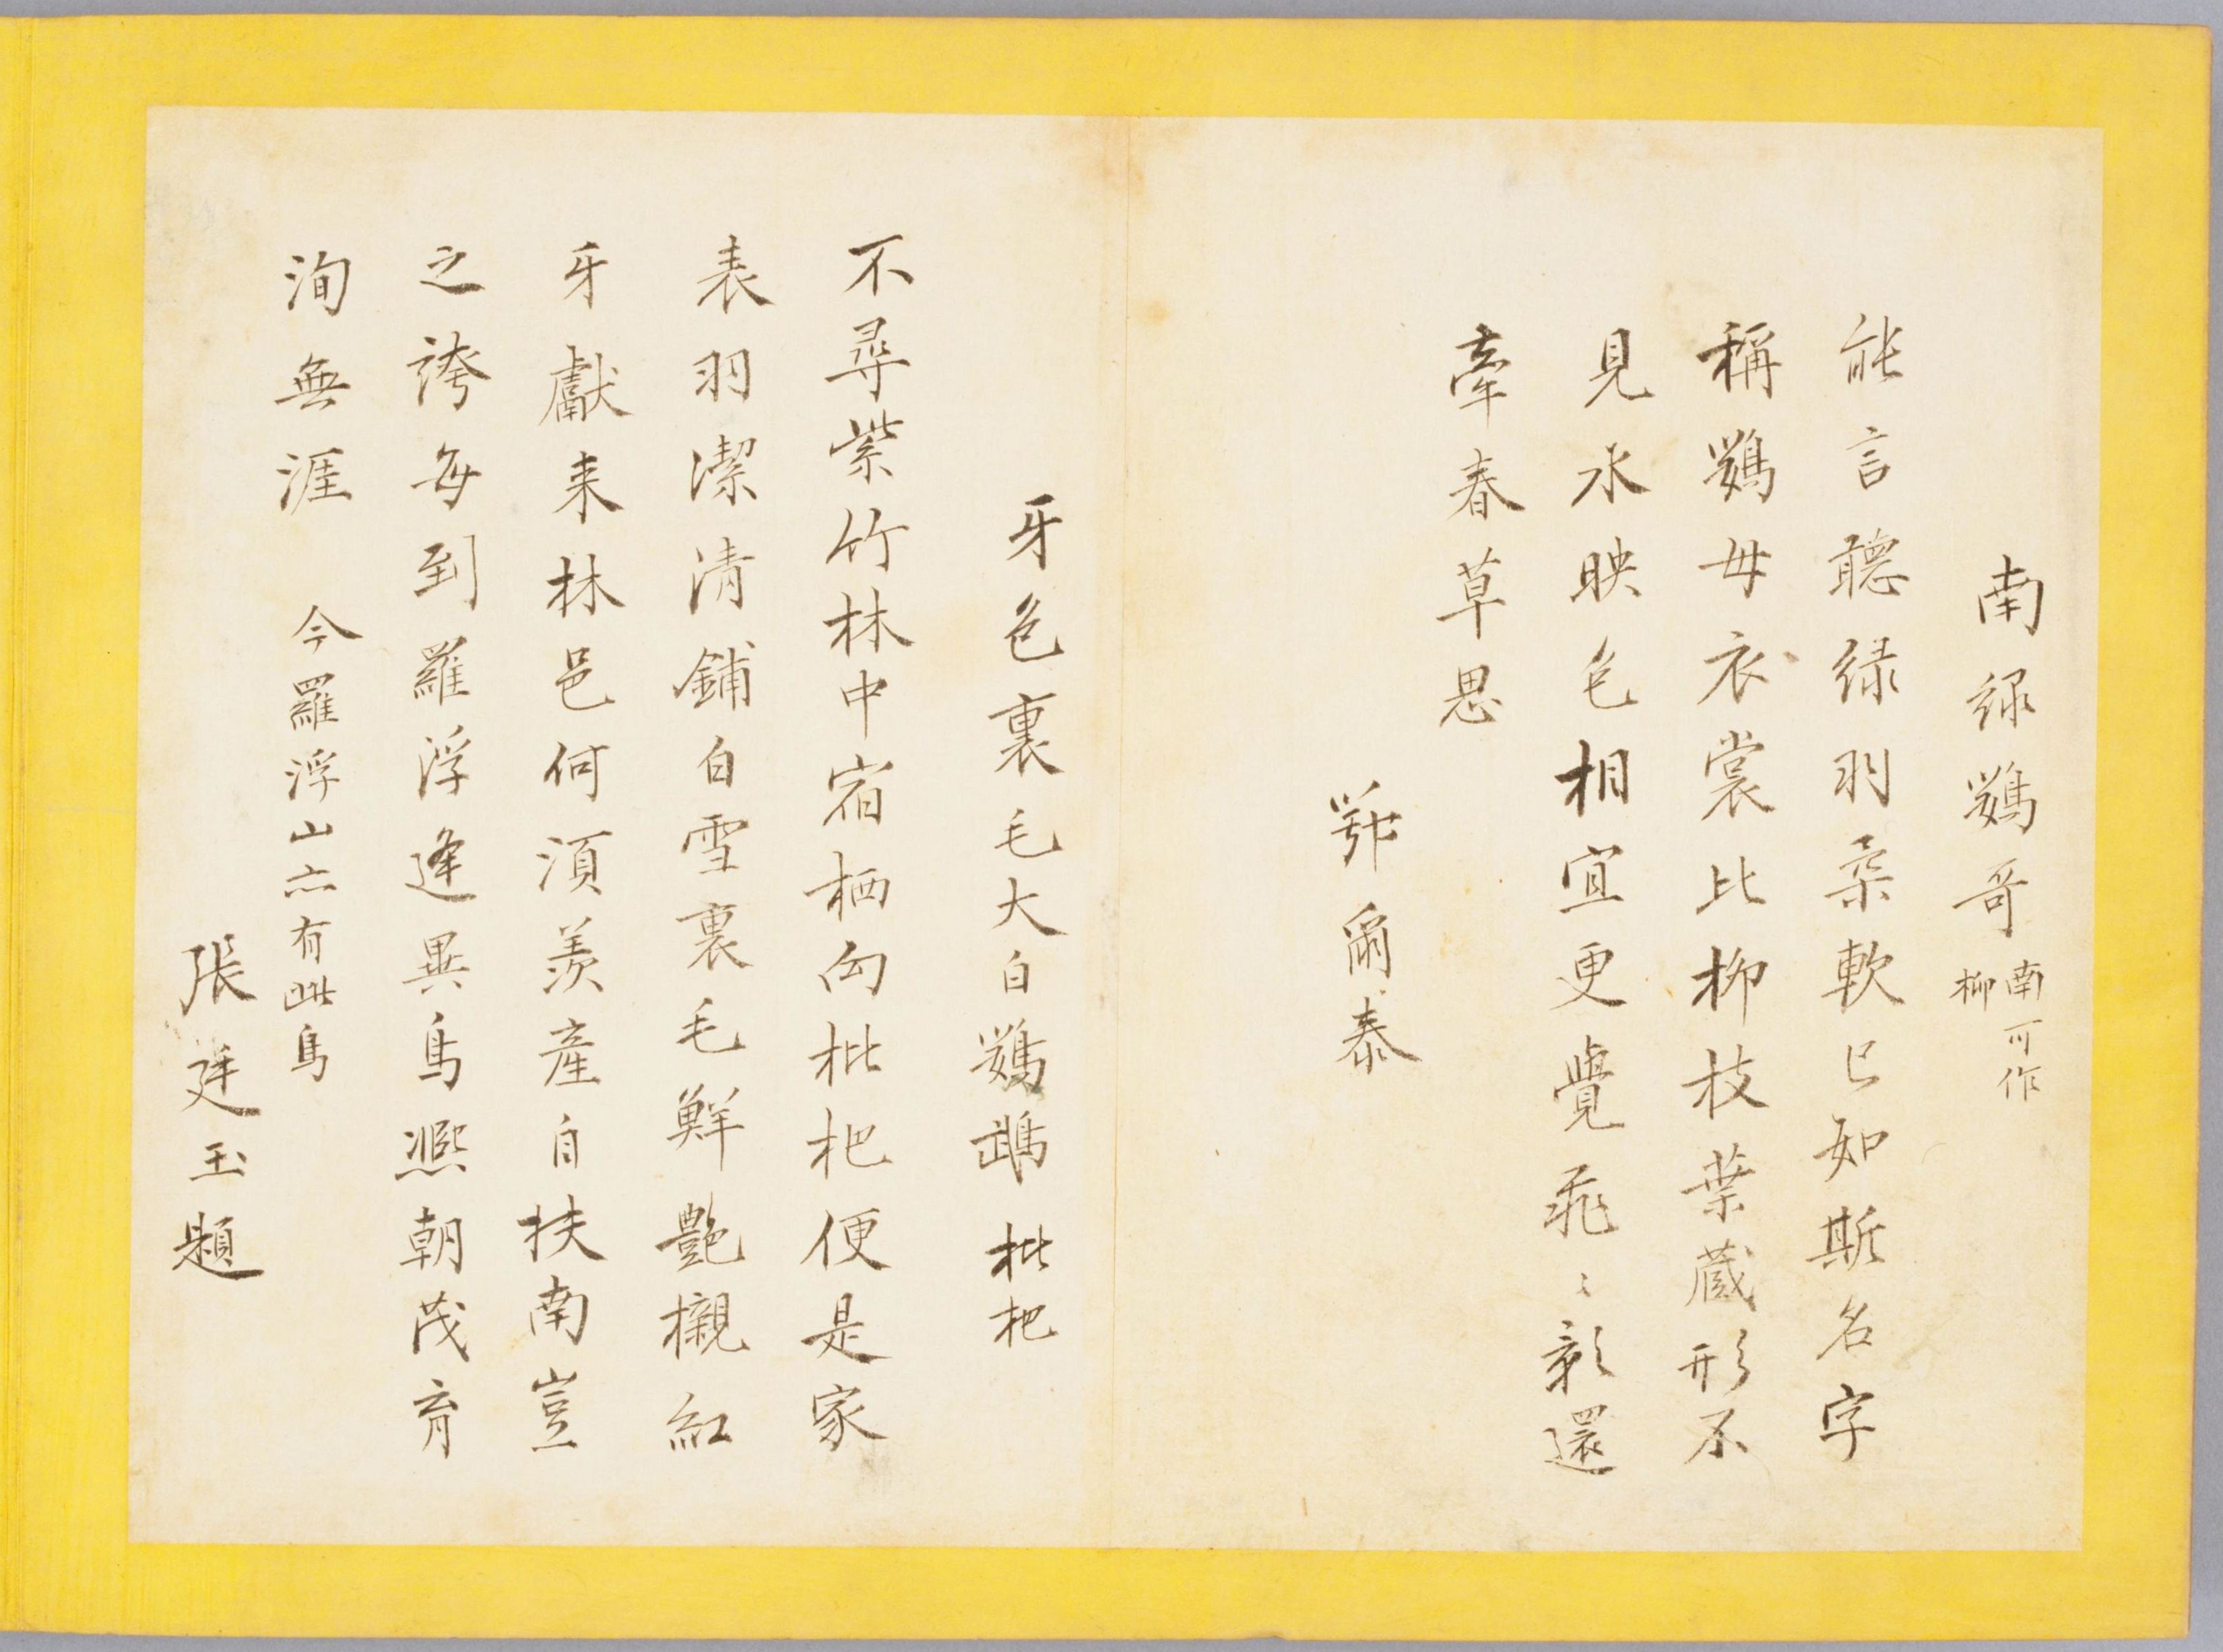 南綠鸚哥 南可作柳
能言聽綠羽柔軟已如斯名字
稱鸚毋衣裳比柳枝葉藏形不
見水映色相宜更覺乖〻影還
牽春草思
鄂爾泰
牙色裏毛大白鸚鵡 枇杷
不尋紫竹林中宿栖向枇杷便是家
表羽潔清鋪白雪裏毛鮮艷襯紅
牙獻來林邑何須羨產自扶南豈
之誇每到羅浮逢異鳥熈朝茂育
洵無涯 今羅浮山亦有此鳥
張廷玉題